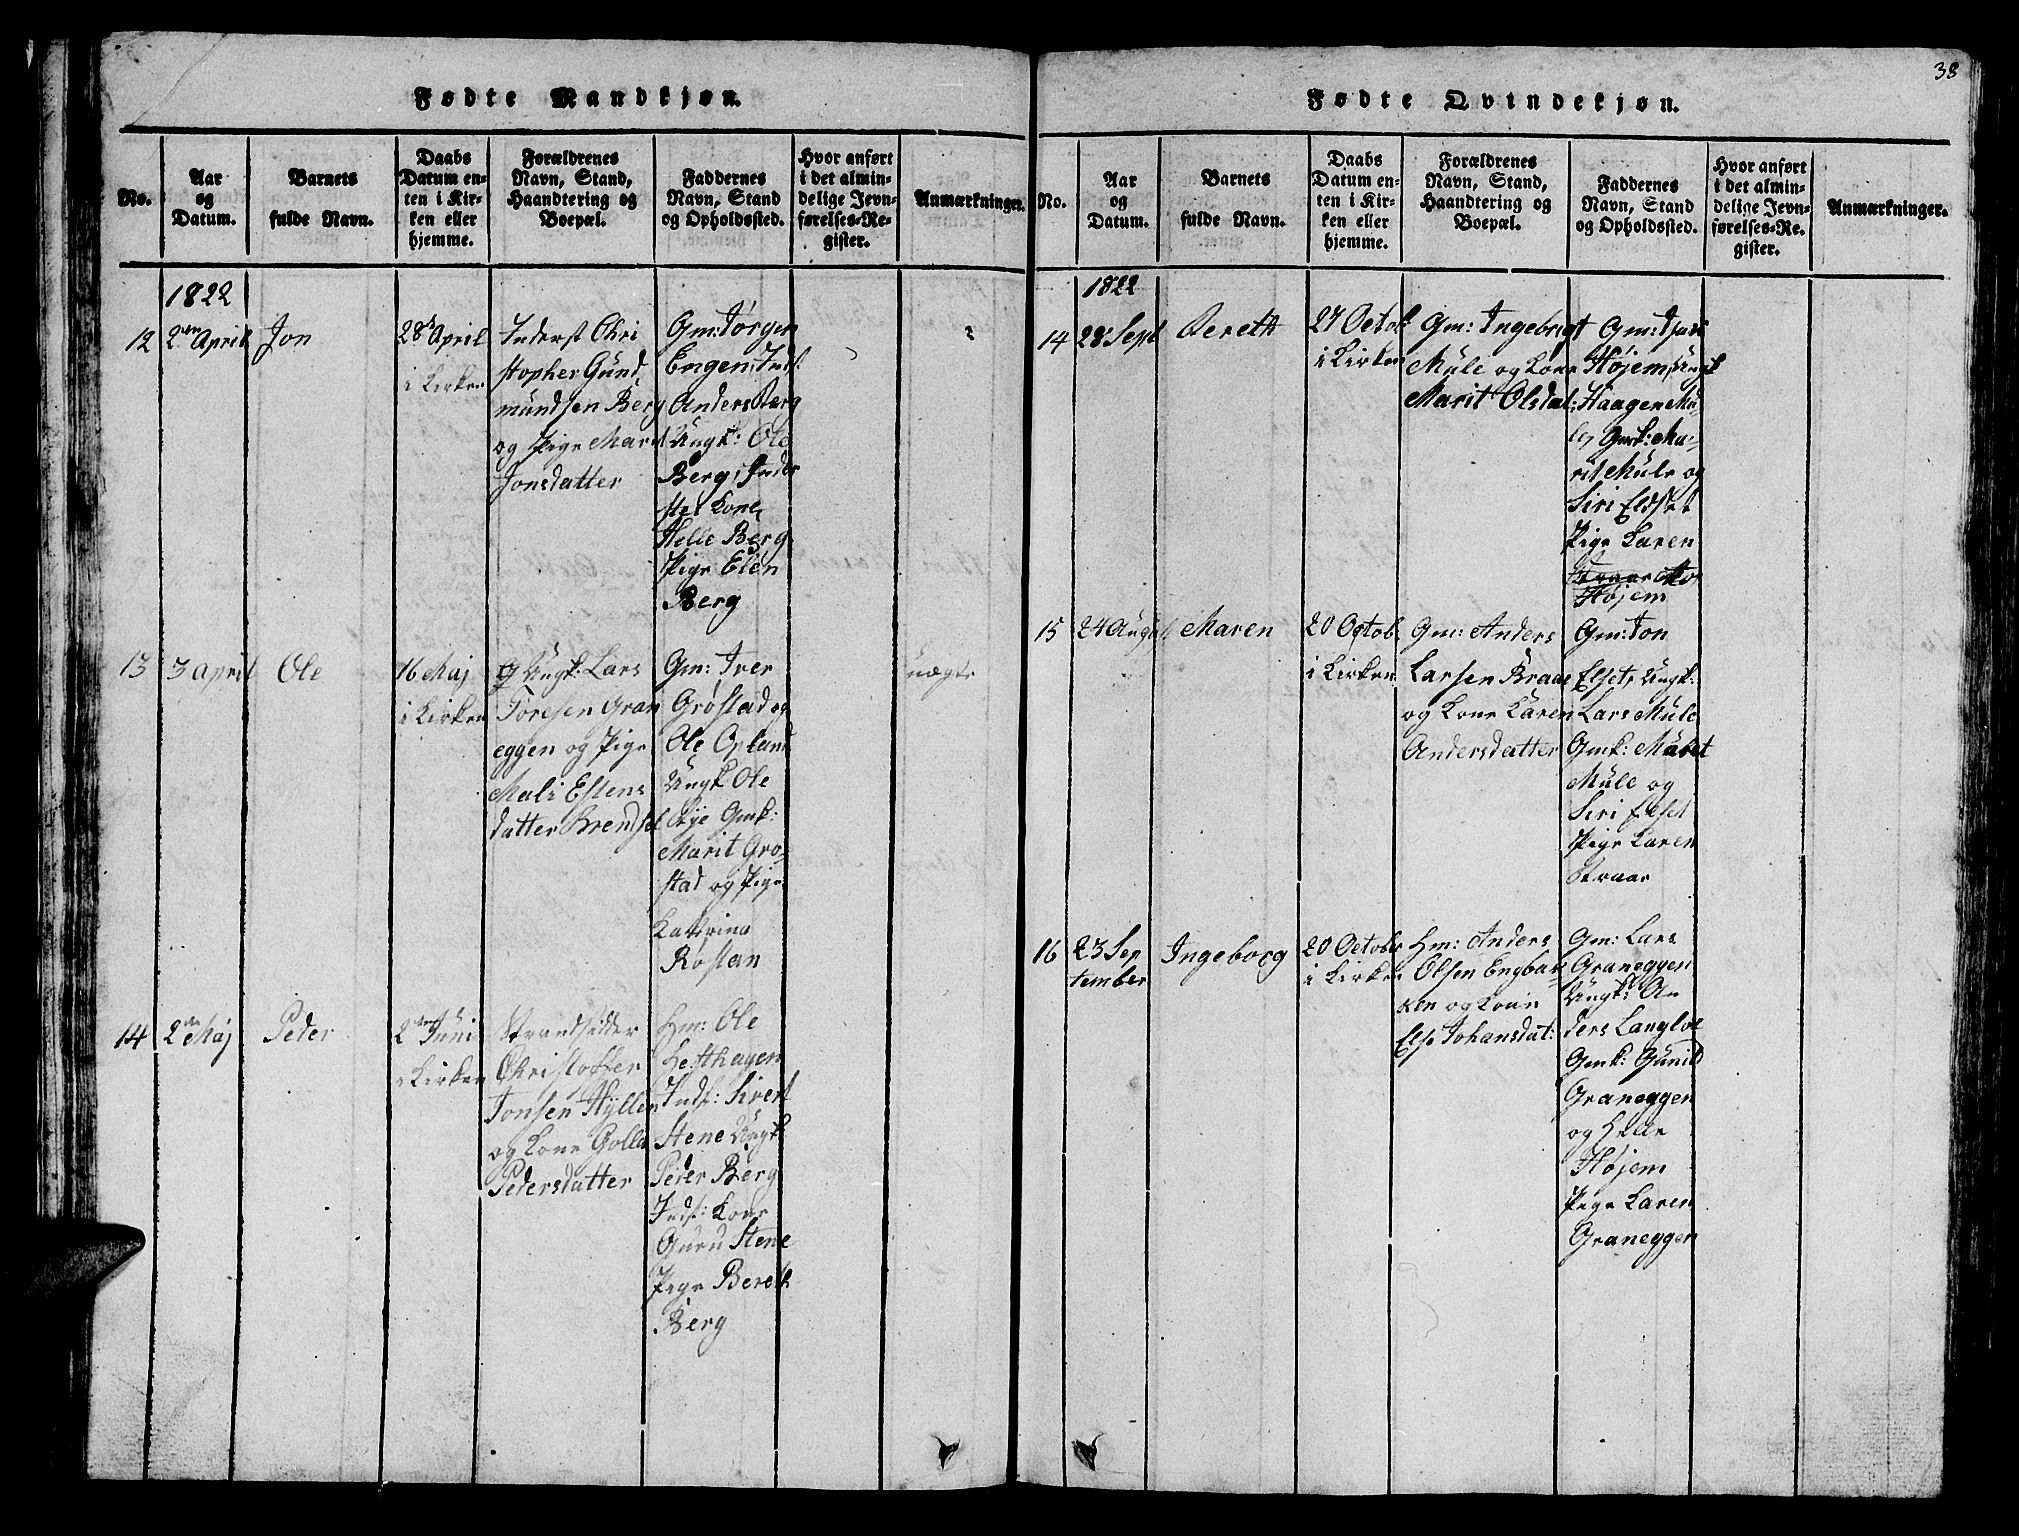 38
Fødte Mandkjøn.
No.
Aar
og
Datum.
Barnets
fulde Navn.
Daabs
Datum en-
ten i Kir-
ken eller
hjemme.
Forældrenes
Navn, Stand,
Haandtering og
Boepæl.
Faddernes
Navn, Stand
og Opholdssted.
Hvor anført
i det almin-
delige Jevn-
førelses-Re-
gister.
Anmærkninger.
1822
12
2den April
Jon
28de April
i Kirken
Inderst Chri
stopher Gund,
mundsen Berg
og Pige Marit
Jonsdatter
Gm: Jørgen
Engen, Inds:
Anders Berg
Ungk: Ole
Berg, Inder
stes Kone
Helle Berg
Pige Elen
Berg
13
3 April
Ole
16 Maj
i Kirken
Ungk: Lars
Toresen Gran
eggen og Pige
Mali Estens
datter Brendsel
Gm: Iver
Grøstad og
Ole Opland
Ungk Ole
Rye Gmk:
Marit Gro-
stad og Pige
Katrina
Rostan
uægte
14
2den Maj
Peder
2den Juni
i Kirken
Strandsidder
Christoffer
Jonsen Hyllen
og Kone Golla
Pedersdatter
Hm: Ole
Hesthagen
Inds: Sivert
Stene Ungk
Peder Berg
Inds: Kone
Guru Stene
Pige Bereth
Berg
Fødte Qvindekjøn.
No.
Aar
og
Datum.
Barnets
fulde Navn.
Daabs
Datum en-
ten i Kir-
ken eller
hjemme.
Forældrenes
Navn, Stand,
Haandtering og
Boepæl.
Faddernes
Navn, Stand
og Opholdssted.
Hvor anført
i det almin-
delige Jevn-
førelses-Re-
gister.
Anmærkninger.
1822
14
28 Sept
Berett
27 Octob
i Kirken
Gm: Ingebrigt
Mule og Kone
Marit Olsdat:
Højem, Ungk
Haagen Mu-
le, Gmk: Ma-
rit Mule og
Siri Elset
Pige Karen
Højem
15
24 August
Maren
20 Octob.
i Kirken
Gm: Anders
Larsen Braae
og Kone Karen
Andersdatter
Gm: Jon
Elset, Ungk:
Lars Mule
Gmk: Marit
Mule og
Siri Elset
Pige Karen
Braar
16
23 Sep
tember
Ingeborg
20 October
i Kirken
Hm: Anders
Olsen Engbak-
ken og Kone
Else Johansdat:
Gm: Lars
Graneggen
Ungk: An
ders Langloe
Gmk: Gunild
Graneggen
og Helle
Højem
Pige Karen
Graneggen